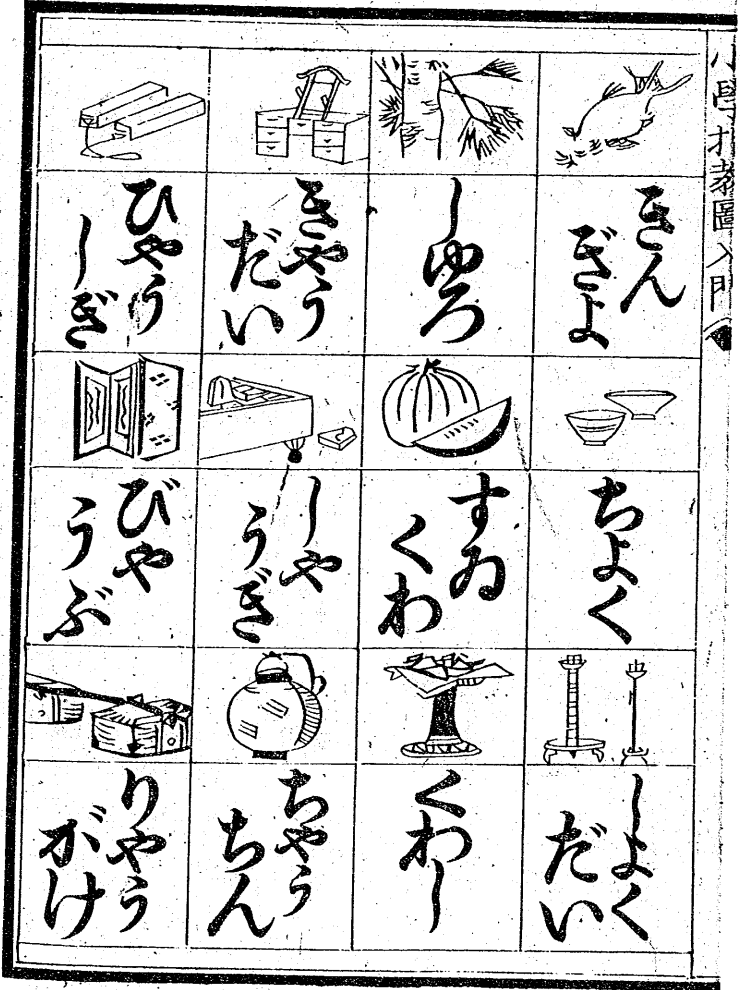 小學指教圖入門
きん
ぎよ
しゆろ
きやう
だい
ひやう
しぎ
ちよく
すゐ
くわ
しや
うぎ
びや
うぶ
しよく
だい
くわし
ちやう
ちん
りやう
がけ